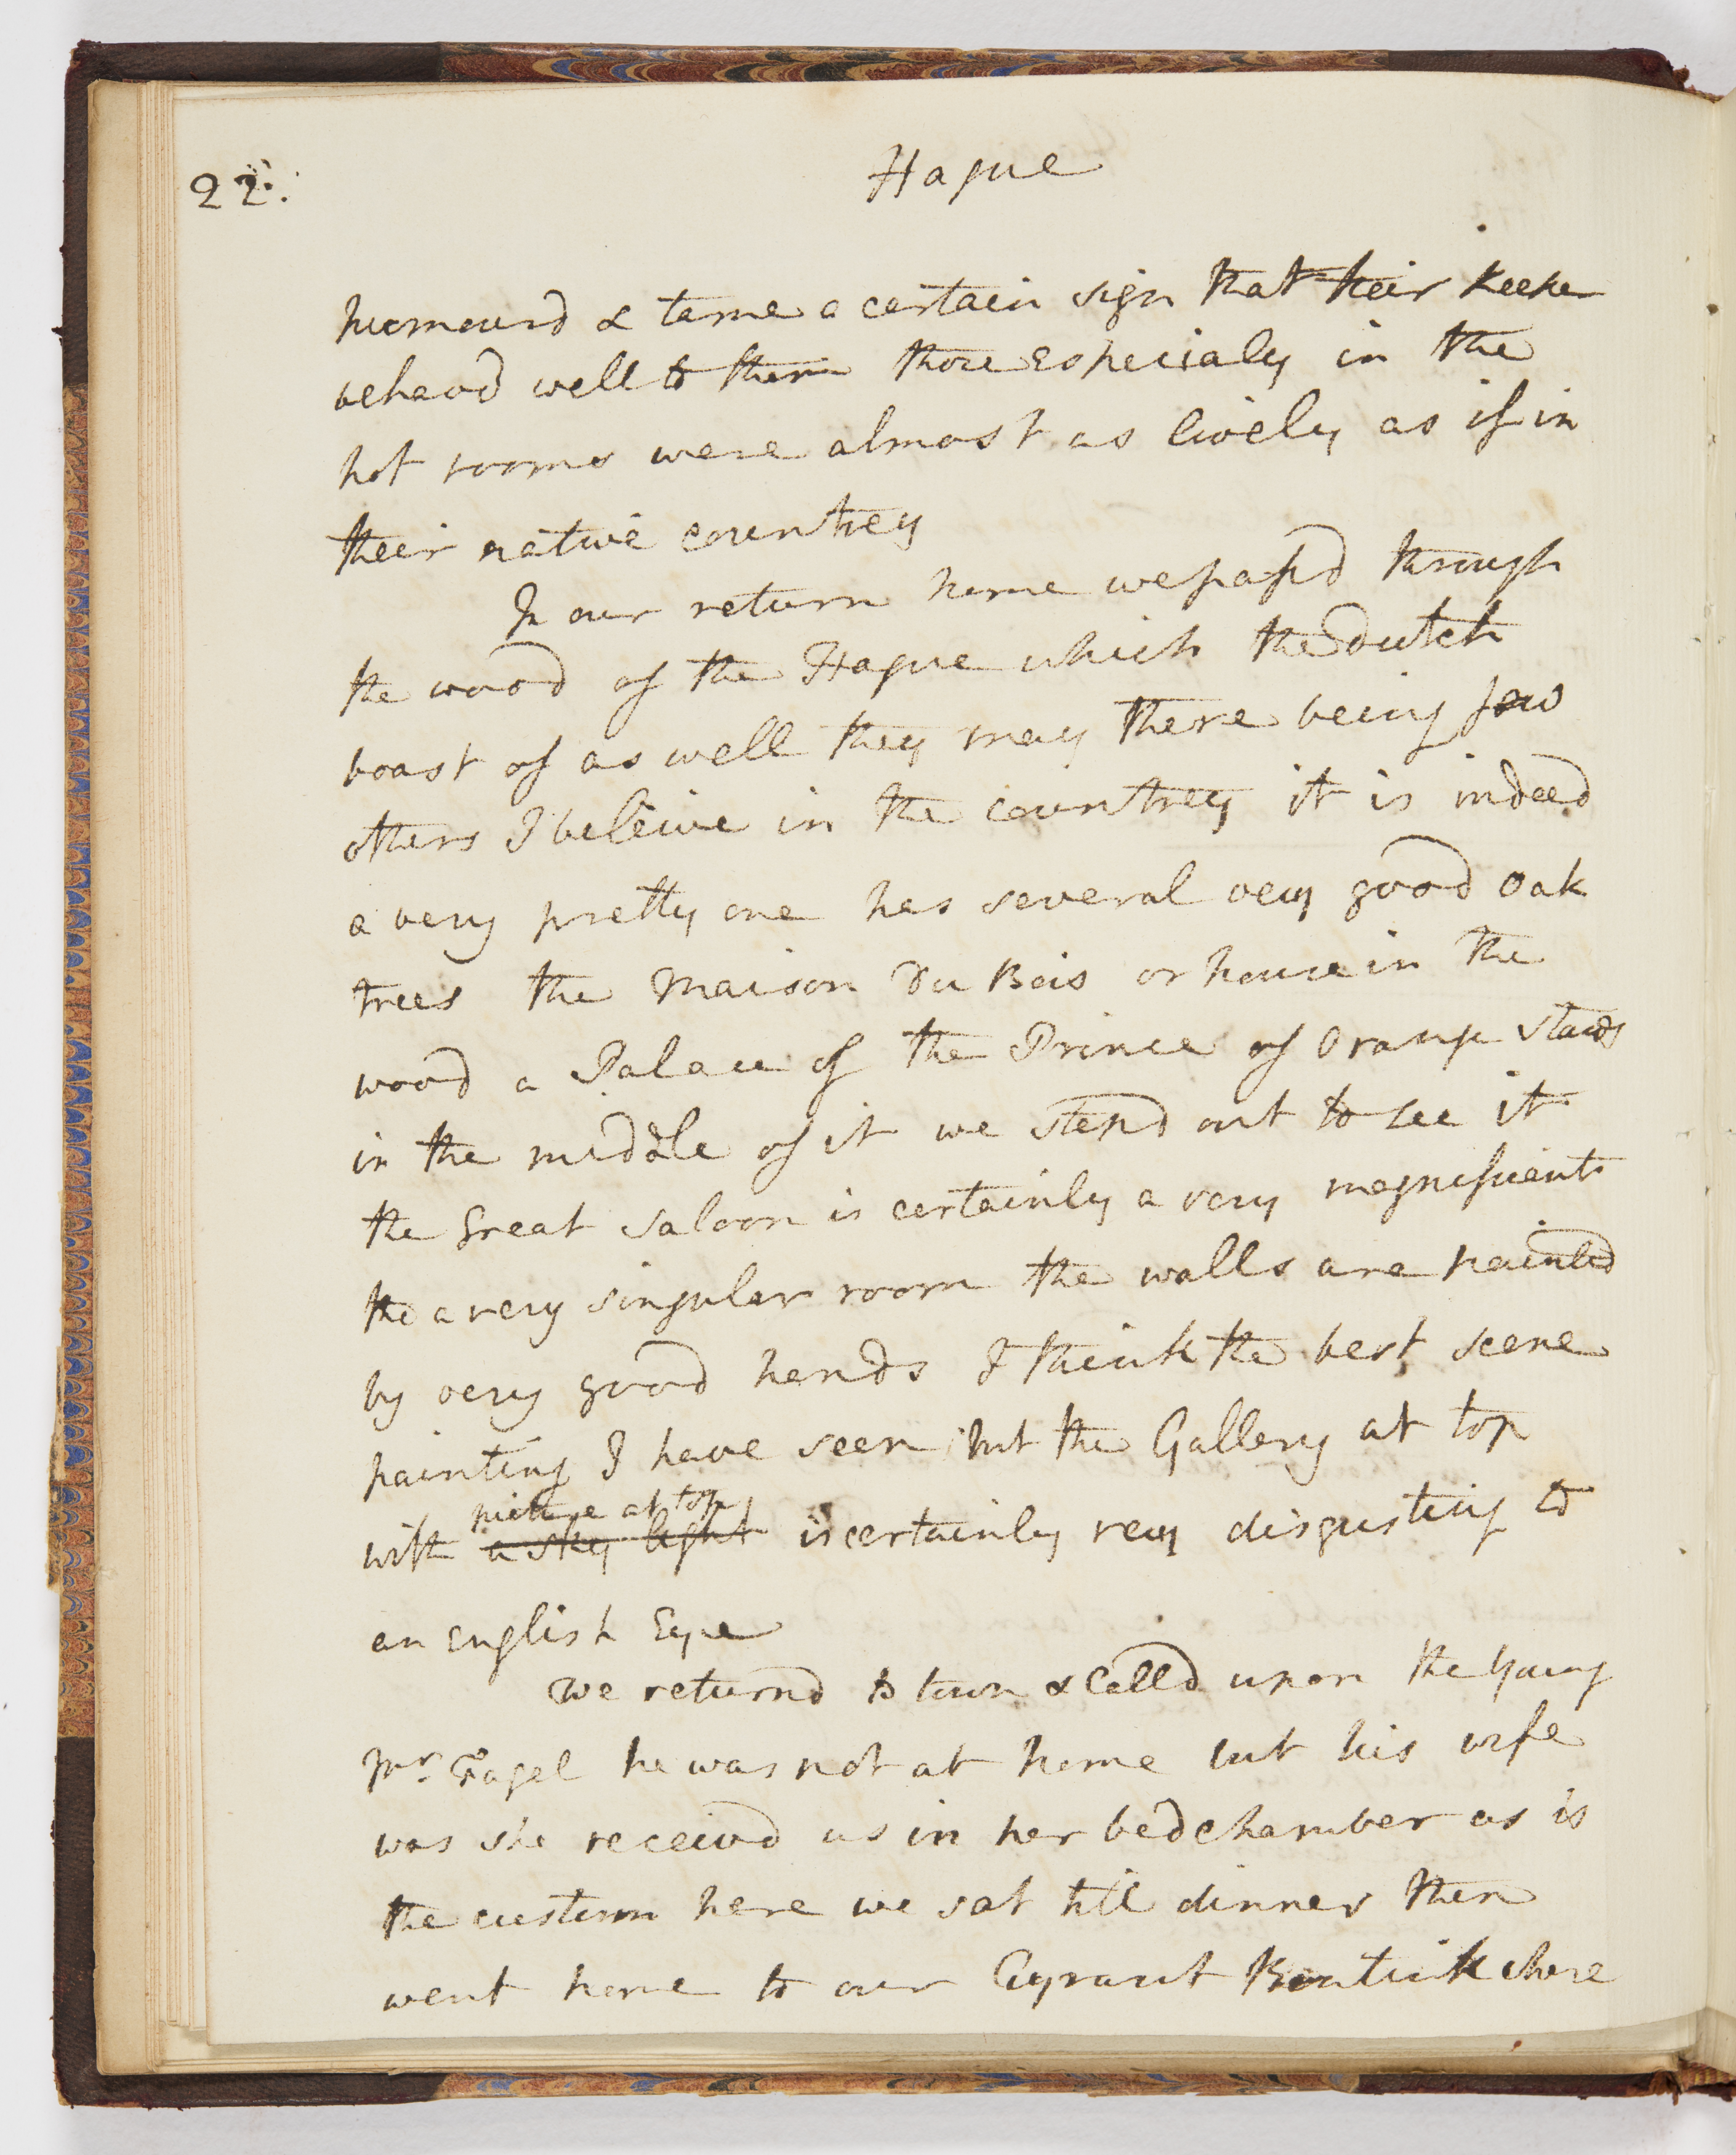 22.
Hague
humourd & tame a certain sign that their keeper
behavd well to them those especialy in the
hot rooms were almost as lively as if in
their native countrey
In our return home we passd through
the wood of the Hague which the dutch
boast of as well they may there being few
others I beleive in the countrey it is indeed
a very pretty one has several very good oak
trees the Maison Du Bois or house in the
wood a Palace of the Prince of Orange stands
in the middle of it we stepd out to see it
the Great saloon is certainly a very magnificent
tho a very singular room the walls are painted
by very good hands I think the best scene
painting I have seen but the Gallery at top
picture at top
with a sky light is certainly very disgusting to
an English Eye
We returnd to town & Calld upon the young
Mr. Fagel he was not at home but his wife
was she receivd us in her bedchamber as is
the custom here we sat till dinner then
went home to our Bentink where